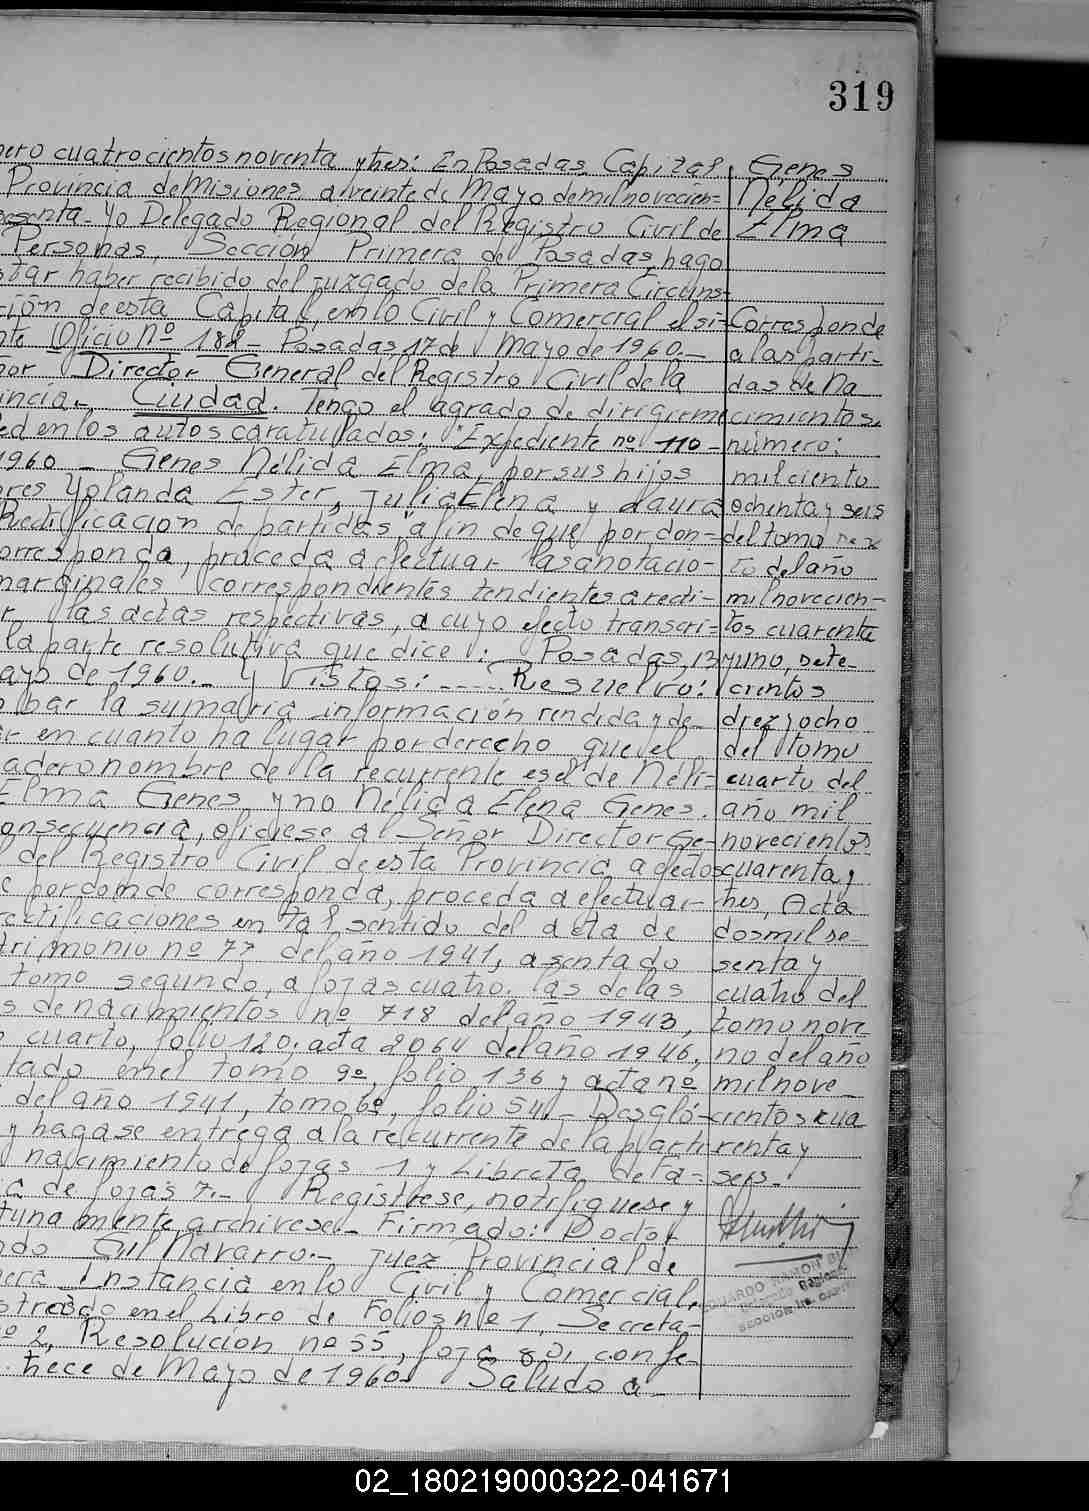 319
nero cuatrocientos noventa y tres: En Posadas, Capital
Provincia de Misiones, a veinte de Mayo de mil novecien=
esenta - Yo Delegado Regional del Registro Civil de
Personas, Sección Primera de Posadas, hago
star haber recibido del Juzgado de la Primera Circuns-
ción de esta Capital, en lo Civil y Comercial el si-
nte Oficio nº 182 - Posadas 17 de Mayo de 1960.-
or Director General del Registro Civil de la
incia.- Ciudad. Tengo el agrado de dirigirme
ed en los autos caratulados: "Expediente nº 110-
1960 - Genes Nélida Elma, por sus hijos
ores Yolanda Ester, Julia Elena y Laura
Rectificación de partidas" a fin de que por don=
orresponda, proceda a efectuar las anotacio-
marginales, correspondientes tendientes a recti-
r las actas respectivas, a cuyo efecto transcri=
la parte resolutiva que dice: Posadas, 13
ayo de 1960.- Y Vistos: ..... Resuelvo:
obar la sumaria información rendida y de-
r en cuanto ha lugar por derecho que el
adero nombre de la recurrente es el de Néli=
Elma Genes y no Nélida Elena Genes.
onsecuencia, ofíciese al Señor Director Ge-
del Registro Civil de esta Provincia, a efectos
e por donde corresponda, proceda a efectuar
rectificaciones en tal sentido del acta de
trimonio nº 77 del año 1941, asentado
tomo segundo, a fojas cuatro. las de las
s de nacimientos nº 718 del año 1943,
o cuarto, folio 120; acta 2064 del año 1946,
tado en el tomo 9º, folio 136 y acta nº
del año 1941, tomo 6º, folio 54.- Desgló-
y hágase entrega a la recurrente de la parti
nacimiento de fojas 1 y Libreta de fa=
ia de fojas 7.- Regístrese, notifíquese y
tunamente archívese. Firmado: Doctor
ndo Gil Navarro.- Juez Provincial de
mera Instancia en lo Civil y Comercial.
strado en el Libro de Folios nº 1, Secreta-
nº 2, Resolución nº 55, foja 80, con fe-
trece de Mayo de 1960. Saludo a-
Genes
Nélida
Elma
Corresponde
a las parti-
das de na
cimientos
número:
mil ciento
ochenta y seis
del tomo sex
to del año
mil novecien-
tos cuarenta
y uno, sete-
cientos
diez y ocho
del tomo
cuarto del
año mil
novecientos
cuarenta y
tres, Acta
dos mil se-
senta y
cuatro del
tomo nove
no del año
mil nove_
cientos cua
renta y
seis.-
02_180219000322-041671